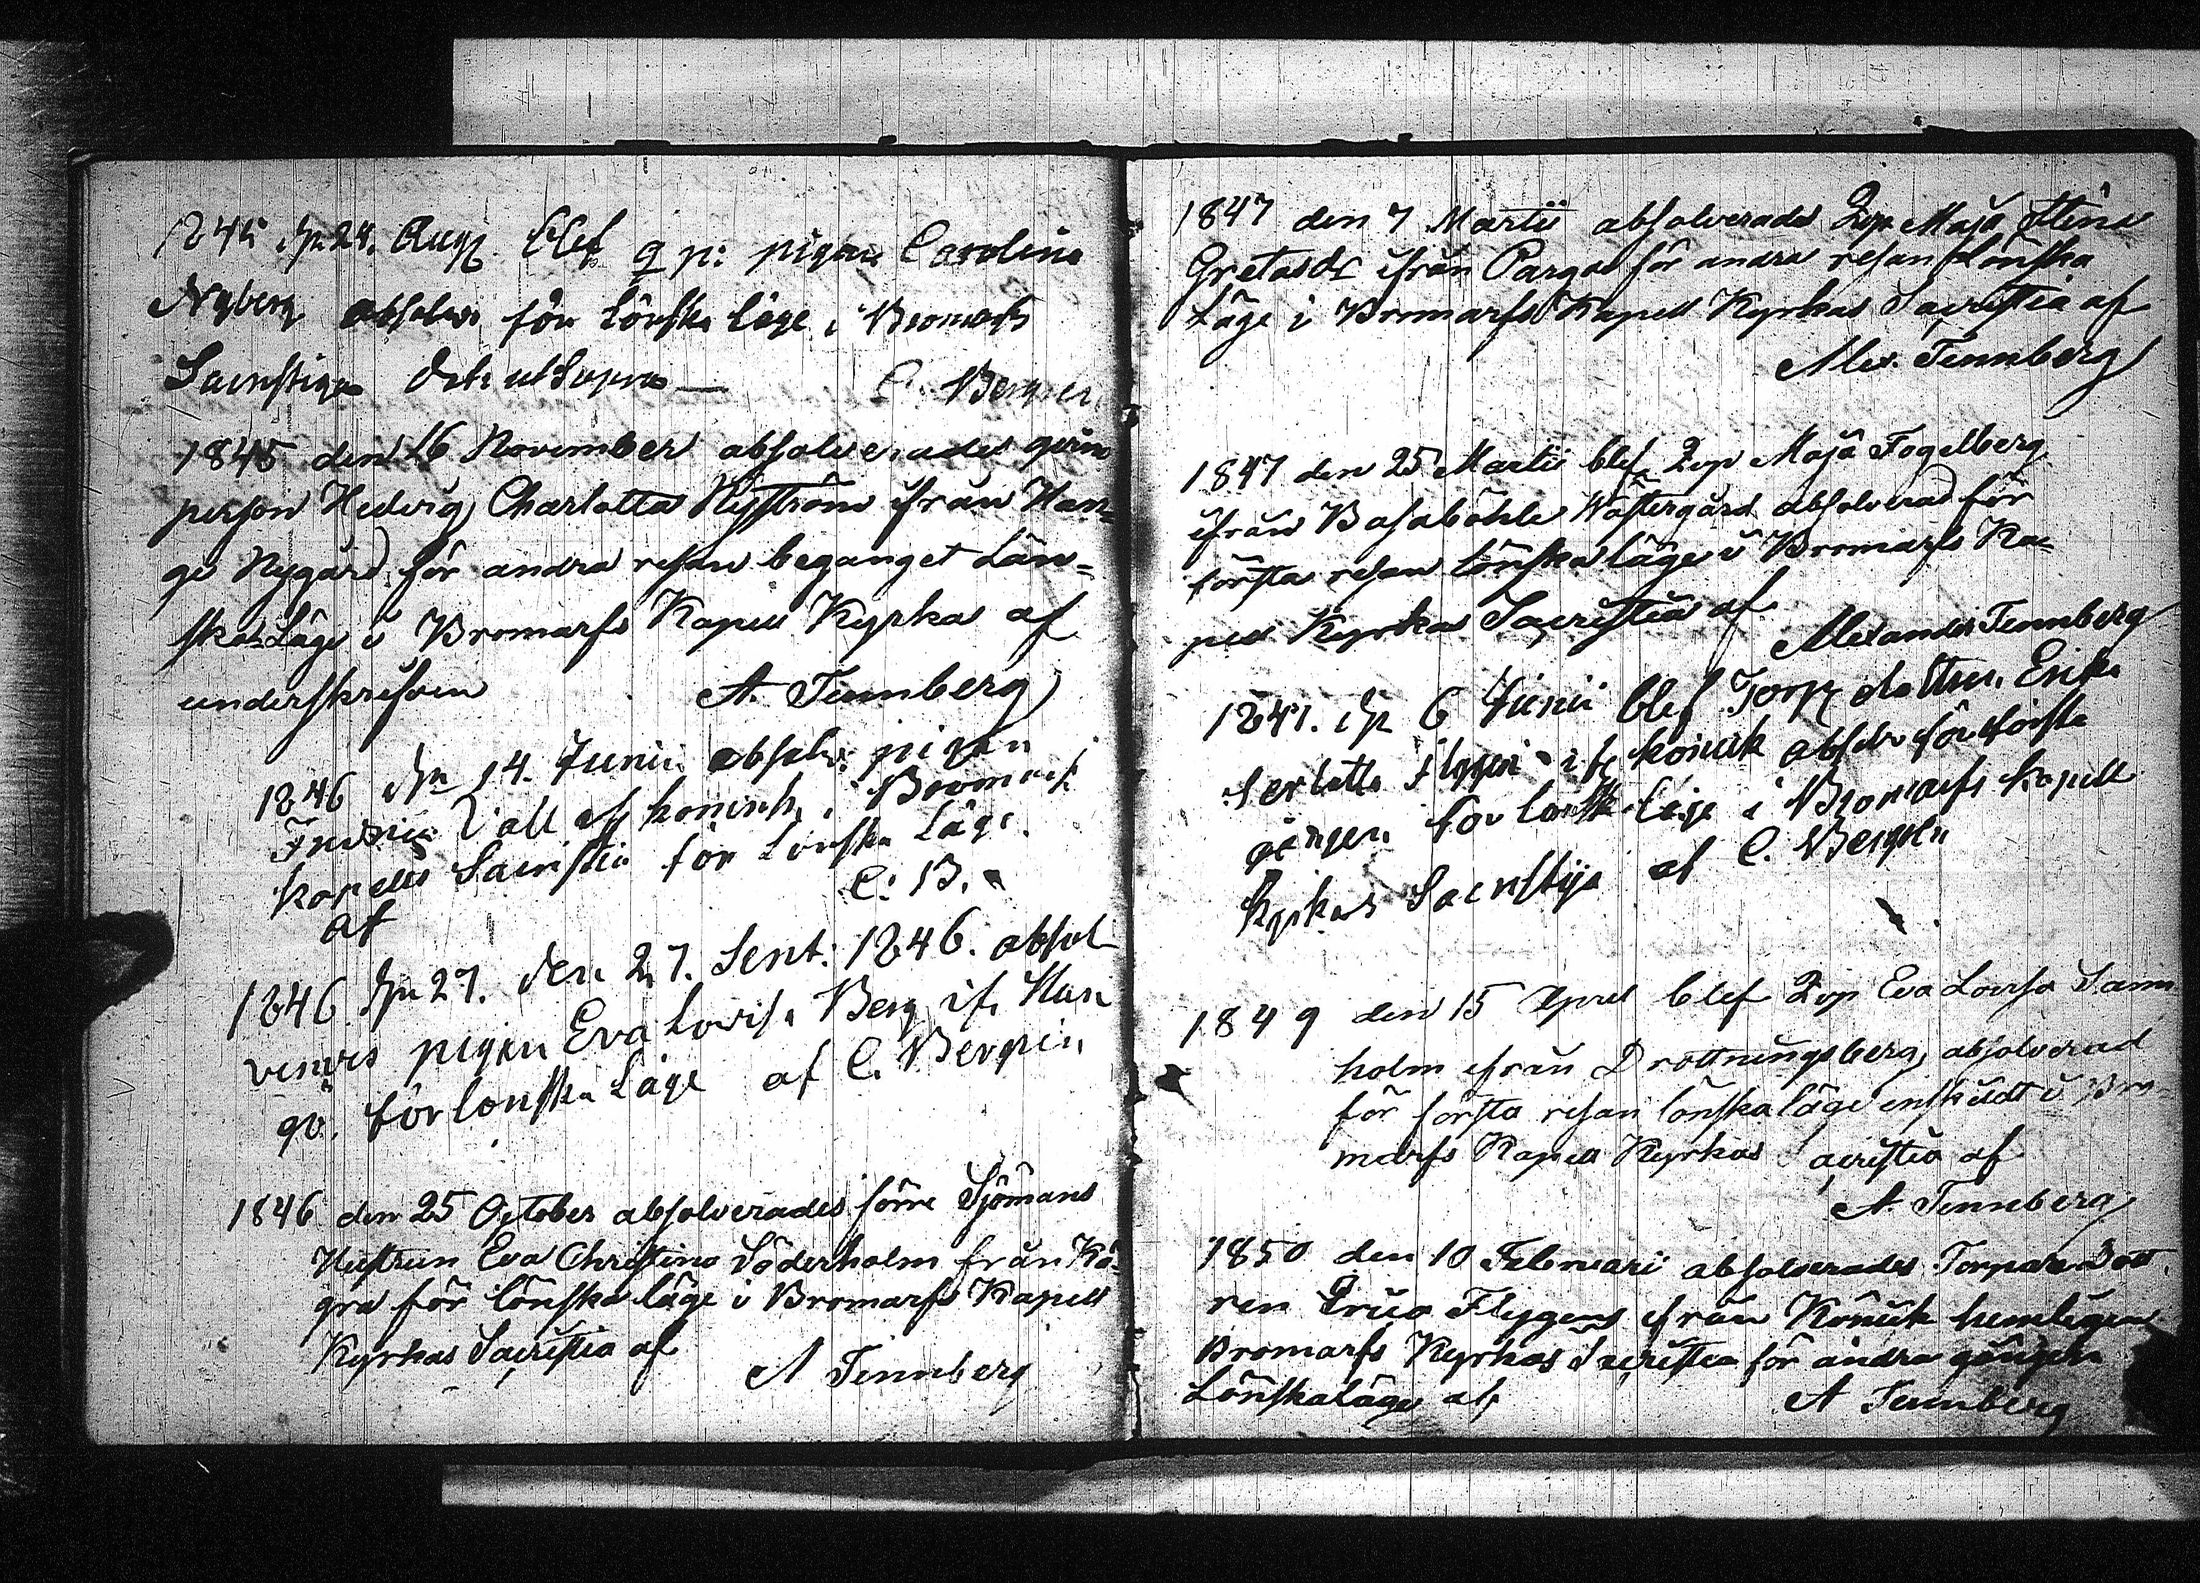 1845 dn 24. Aug. blef q p: pigan Carolina
Nyberg absolv: för Lönska läge i Bromarfs
Sacristiga dat: ut Supra — C. Bergren
1845 den 16 November absolverades qvins
person Hedvig Charlotta Nyström ifrån Han=
gö Nygård för andra resan begånget Lön=
ska Läge i Bromarfs Kapell Kyrka af
underskrifven A. Tennberg
1846 dn 14. Junii absolv: pigan
Vall af Könick i Bromarf
Kapells Sacristia för Lönska Läge.
af C: B.
1846 dn 27. den 27. Sept: 1846. absol
veras pigan Eva Lovisa Berg if. Han
gö. för lönska Läge af C. Bergren
1846 den 25 October absolverades förre Sjömans
Hustrun Eva Christina Söderholm från Kå=
gra för lönska läge i Bromarfs Kapell
Kyrkas Sacristia af
A Tennberg
1847 den 7 Martii absolverades Qvp Maja Stina
Gretasdr ifrån Pargas för andra resan Lönska
Läge i Bromarfs Kapell Kyrkas Sacristia af
Alex. Tennberg
1847 den 25 Martii blef Qvp Maja Fogelberg
ifrån Basaböhle Wästergård absolverad för
första resan lönska läge i Bromarfs Ka=
pell Kyrkas Sacristia af
Alexander Tennberg
1847. dn 6 Junii blef Torp dottren Erika
Serlotta if Könick absolv för första
gången för lönska läge i Bromarfs Kapell
Kyrkas Sacristija af C. Bergren
1849 den 15 April blef Qvp Eva Lovisa Sann
holm ifrån Drottningsberg absolverad
för första resan lönska läge enskildt i Bro=
marfs Kapell Kyrkas Sacristia af
A. Tennberg
1850 den 10 Februari absolverades Torpare Dott
ren Flygen ifrån Könick hemligen
Bromarfs Kyrkas Sacristia för andra gången
Lönskaläge af A Tennberg